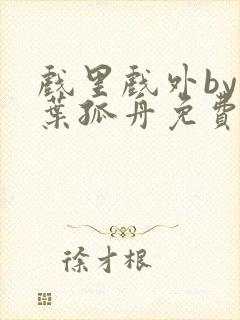 戏里戏外by
葉孤舟免費
徐才根